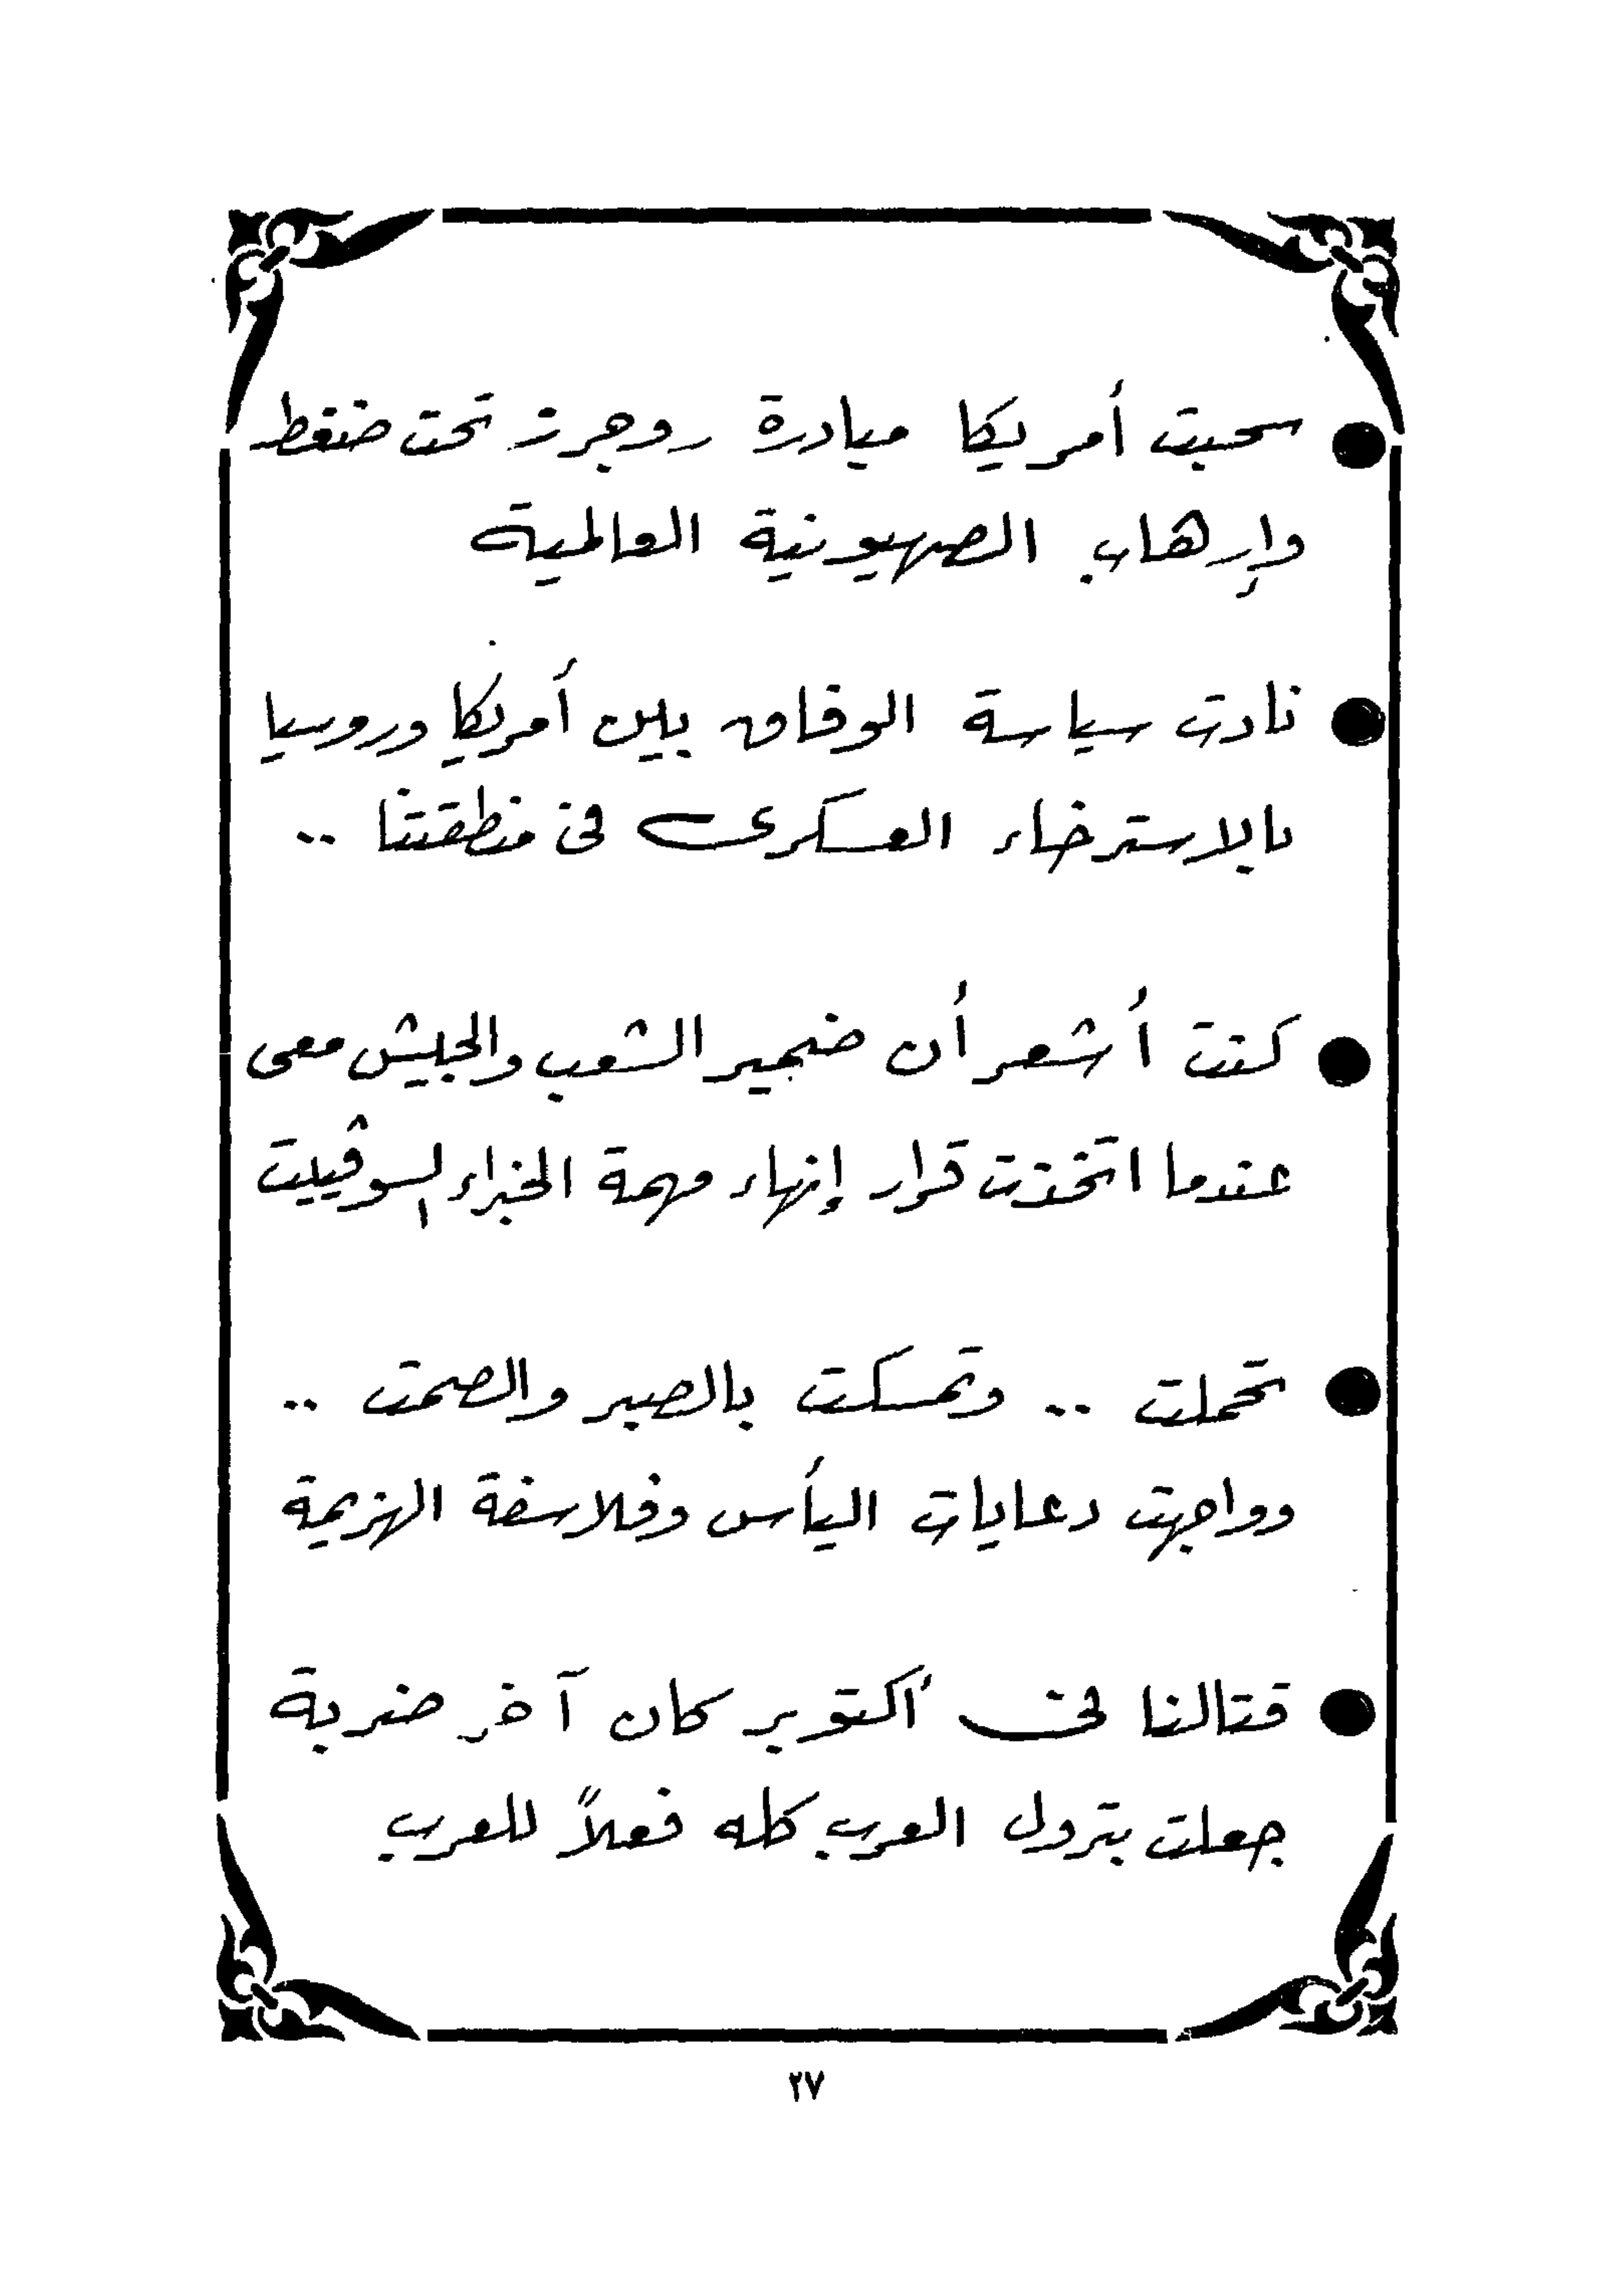 ● سحبت أمريكا مبادرة روجرز تحت ضغط
وإرهاب الصهيونية العالمية
● نادت سياسة الوفاق بين أمريكا وروسيا
بالاسترخاء العسكرى فى منطقتنا ..
● كنت أشعر أن ضمير الشعب والجيش معى
عندما اتخذت قرار إنهاء مهمة الخبراء السوڤييت
● تحملت .. وتمسكت بالصبر والصمت ..
وواجهت دعايات اليأس وفلاسفة الهزيمة
● قتالنا فى أكتوبر كان آخر ضربة
جعلت بترول العرب كله فعلاً للعرب
٢٧